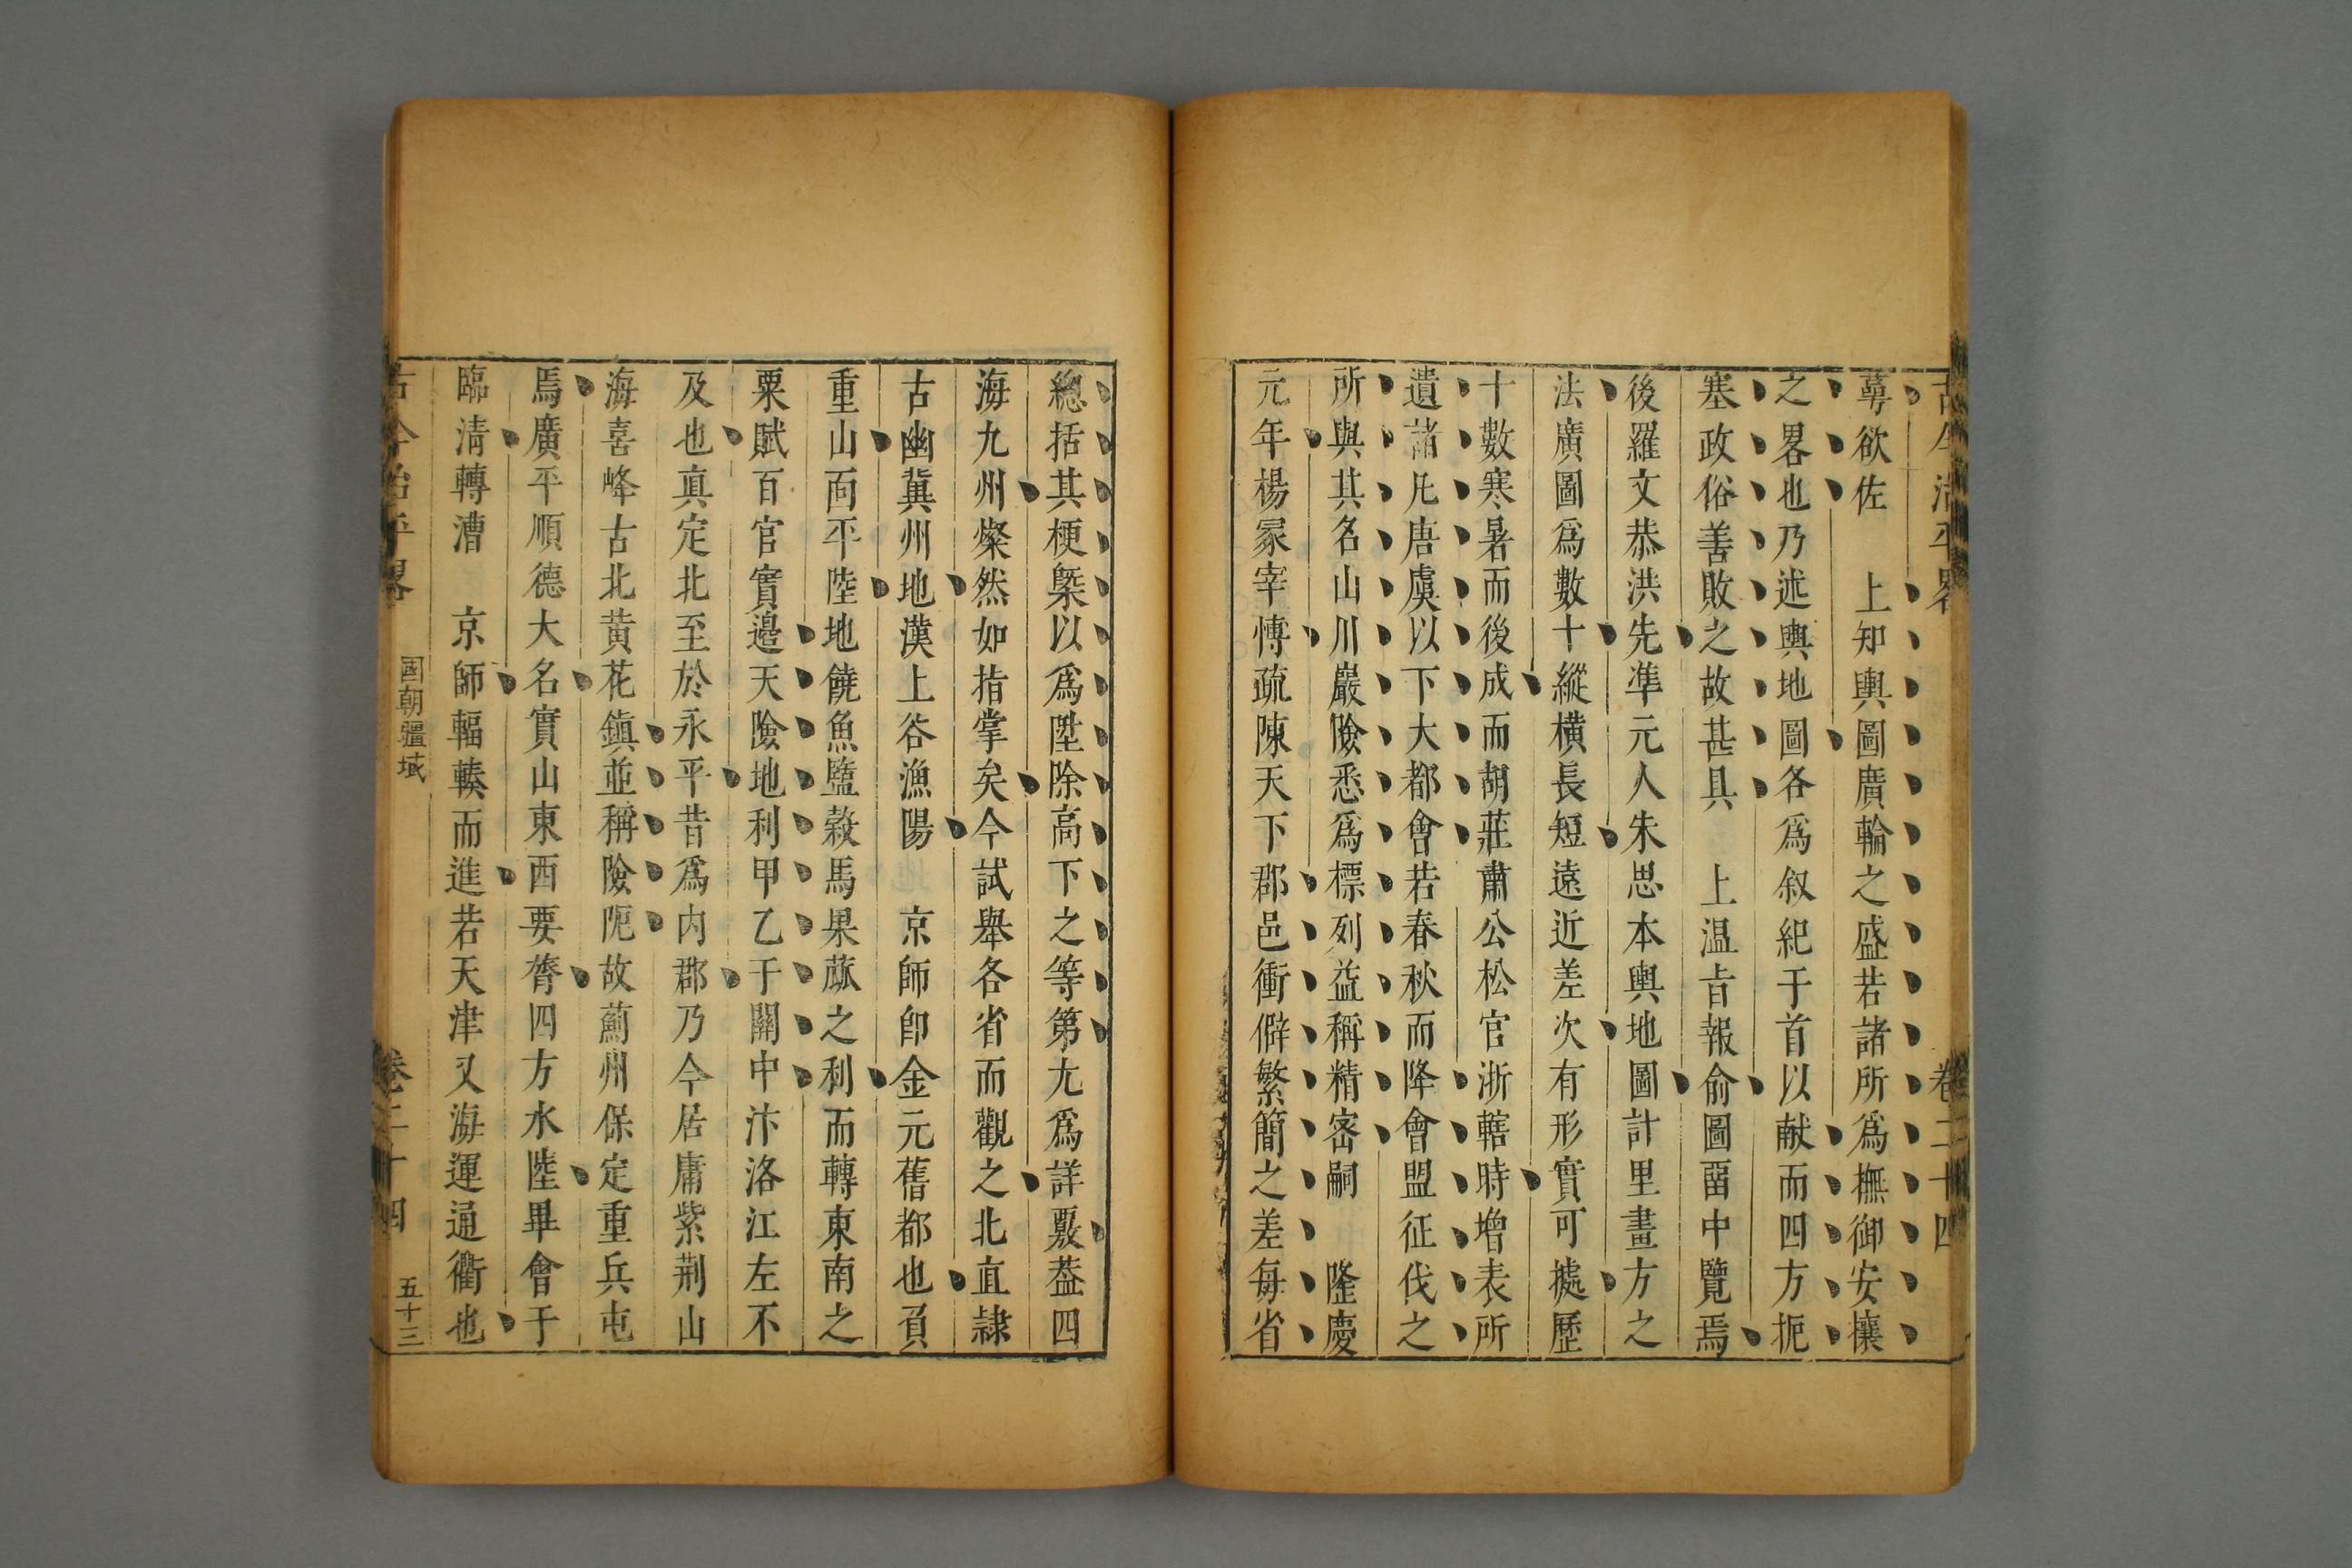 古今治平畧 卷二十四
蕚欲佐 上知輿圖廣輪之盛若諸所爲撫御安攘
之畧也乃述輿地圖各爲叙紀于首以献而四方扼
塞政俗善敗之故甚具 上温旨報俞圖畱中覽焉
後羅文恭洪先準元人朱思本輿地圖計里畫方之
法廣圖爲數十縱横長短遠近差次有形實可㨿歷
十數寒暑而後成而胡莊肅公松官浙轄時增表所
遺諸凡唐虞以下大都會若春秋而降會盟征伐之
所與其名山川巖險悉爲標列益稱精密嗣 隆慶
元年楊冢宰愽疏陳天下郡邑衝僻繁簡之差每省
總括其梗槩以爲陞除高下之等第尤爲詳覈葢四
海九州燦然如指掌矣今試舉各省而觀之北直隷
古幽冀州地漢上谷漁陽 京師卽金元舊都也負
重山面平陸地饒魚鹽榖馬果蓏之利而轉東南之
粟賦百官實邉天險地利甲乙于關中汴洛江左不
及也真定北至於永平昔爲内郡乃今居庸紫荆山
海喜峰古北黄花鎮並稱險阨故薊州保定重兵屯
焉廣平順德大名實山東西要膂四方水陸畢會于
臨清轉漕 京師輻輳而進若天津又海運通衢也
古今治平畧 國朝疆域 卷二十四 五十三